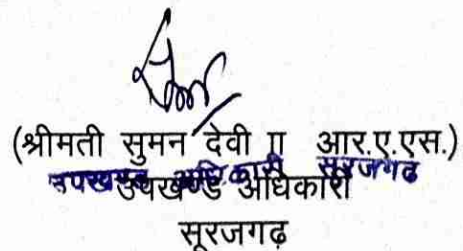 (श्रीमती सुमन देवी ा आर.ए.एस.)
उपखण्ड अधिकारी सूरजगढ
उपखण्ड अधिकारी
सूरजगढ़